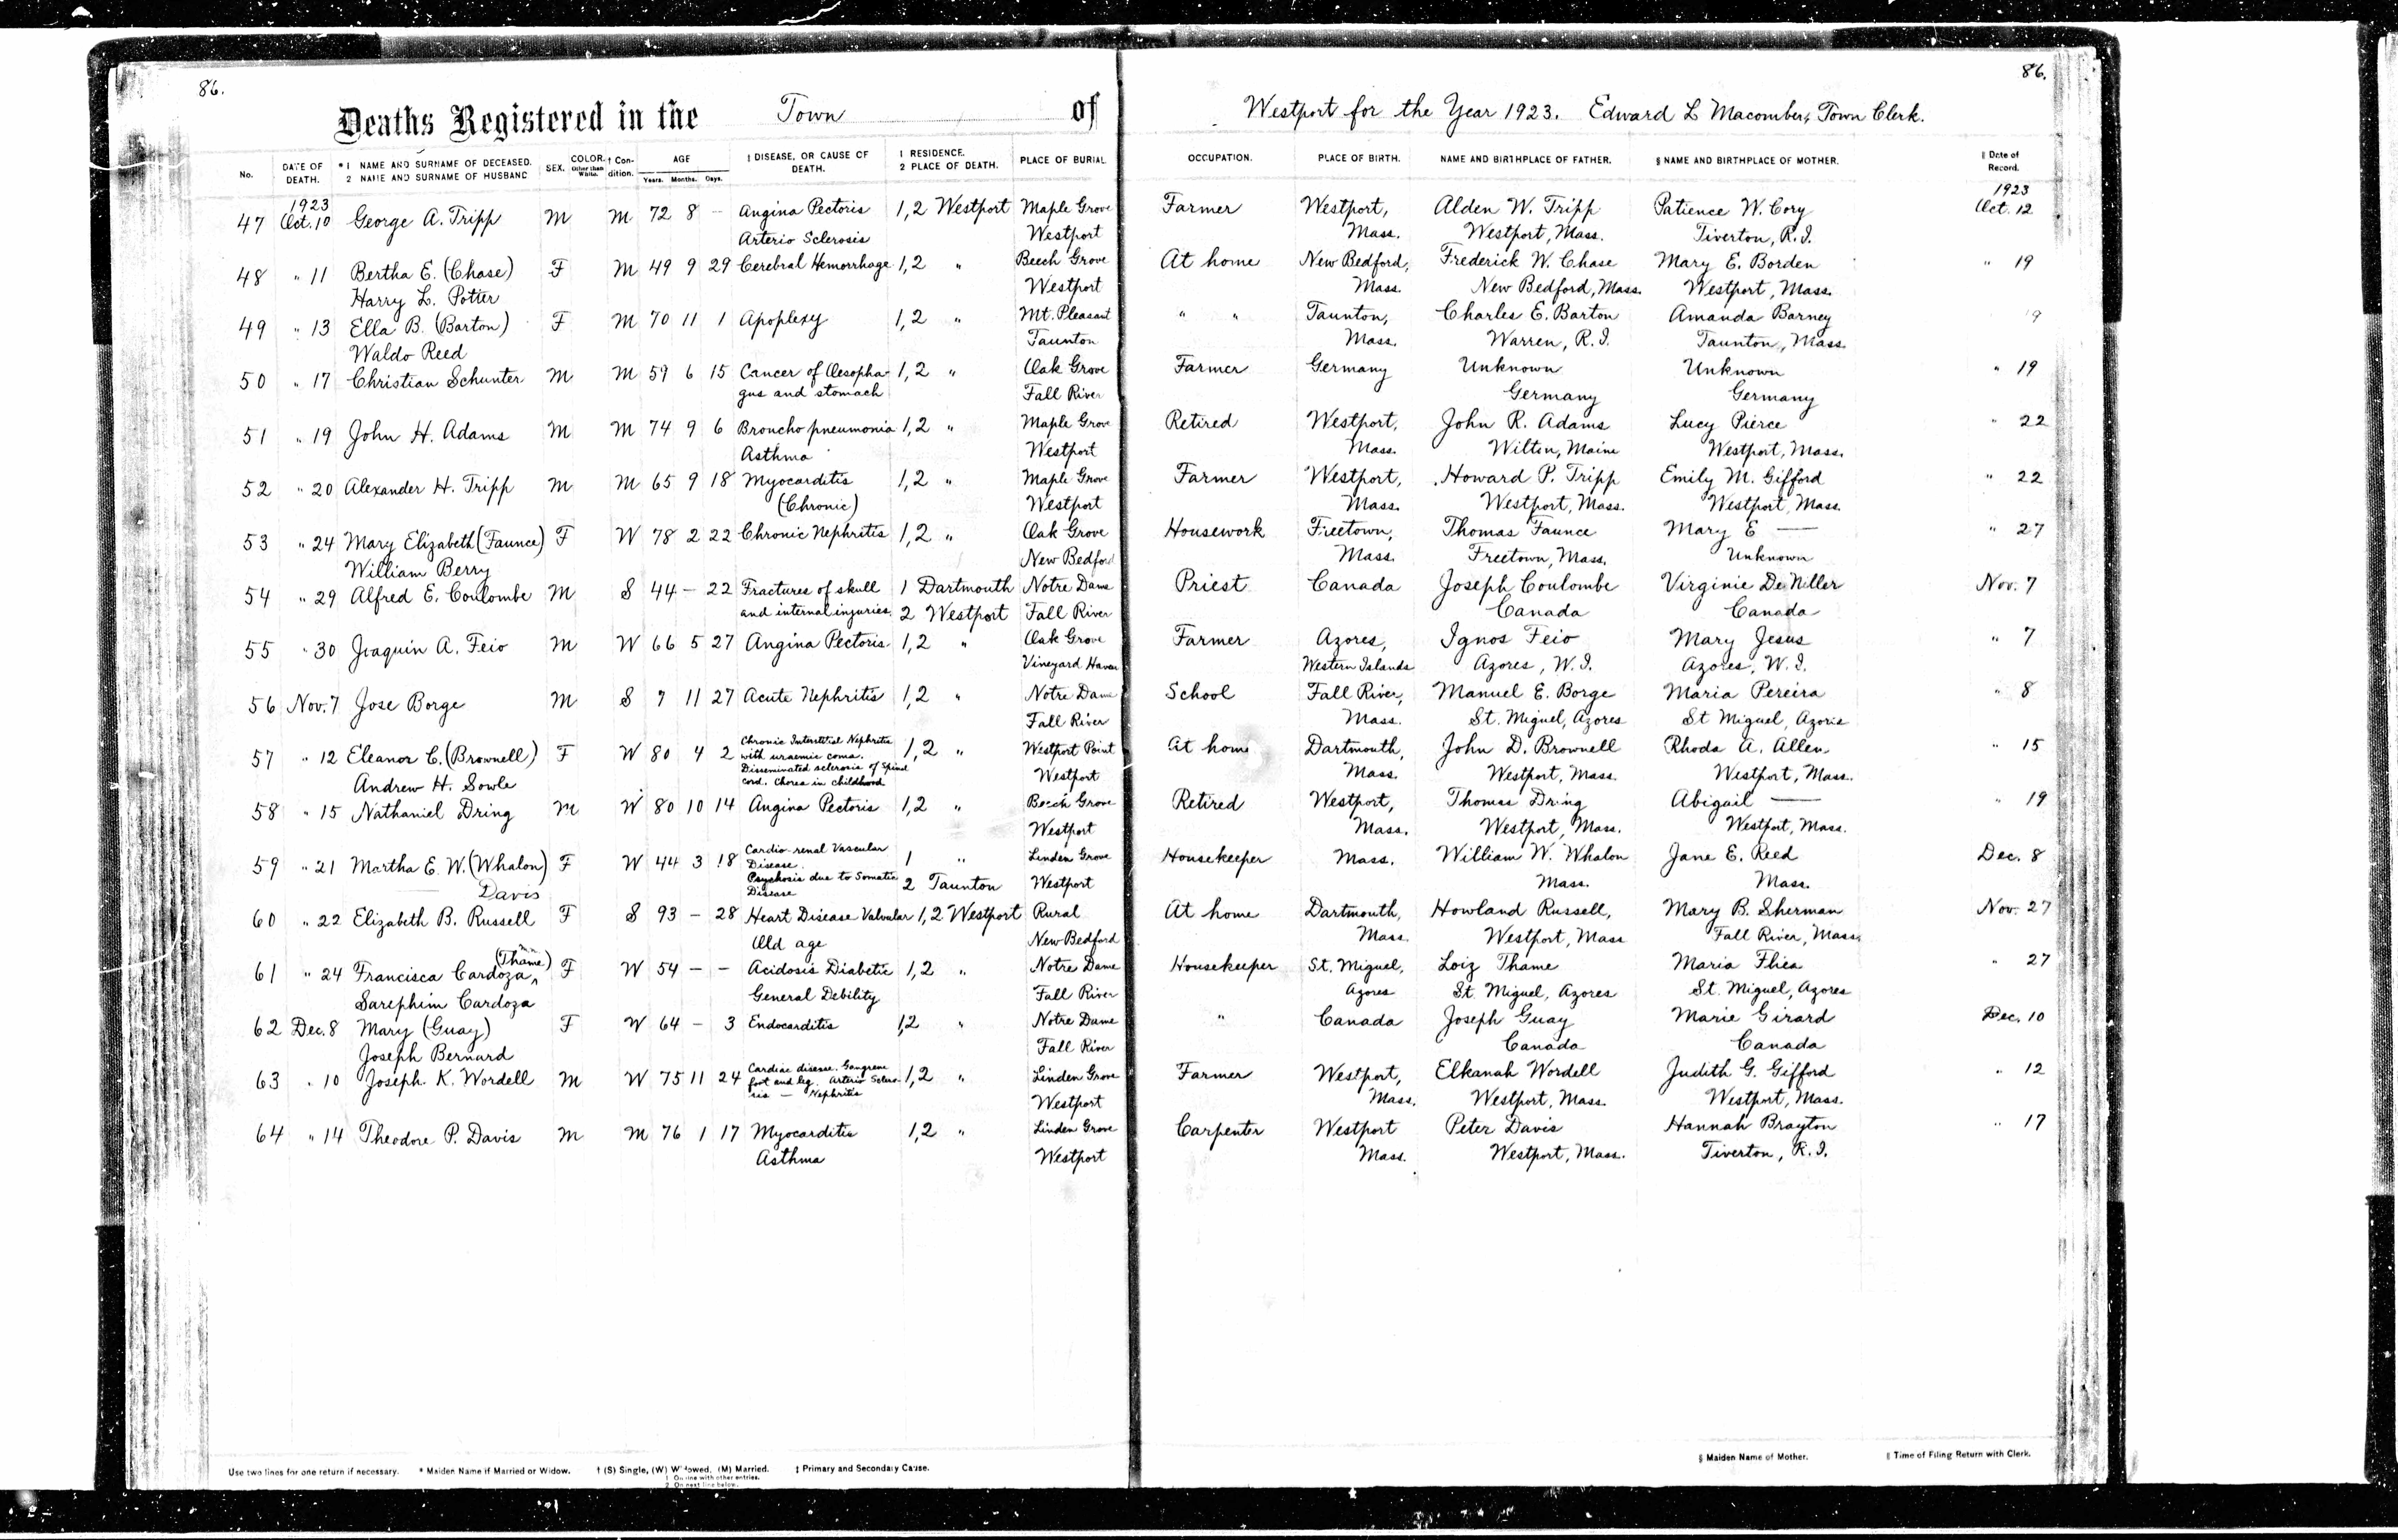 86.
86.
Deaths Registered in the Town of Westport for the Year 1923. Edward L Macomber, Town Clerk.
No. DATE OF DEATH. * 1 NAME AND SURNAME OF DECEASED. 2 NAME AND SURNAME OF HUSBAND SEX. COLOR. Other than White. † Condition. AGE Years. Months. Days. ‡ DISEASE, OR CAUSE OF DEATH. 1 RESIDENCE. 2 PLACE OF DEATH. PLACE OF BURIAL OCCUPATION. PLACE OF BIRTH. NAME AND BIRTHPLACE OF FATHER. § NAME AND BIRTHPLACE OF MOTHER. ‖ Date of Record.
1923 1923
47 Oct. 10 George A. Tripp M M 72 8 – Angina Pectoris 1,2 Westport Maple Grove Farmer Westport, Alden W. Tripp Patience W. Cory Oct. 12
Arterio Sclerosis Westport Mass. Westport, Mass. Tiverton, R.I.
48 " 11 Bertha E. (Chase) F M 49 9 29 Cerebral Hemorrhage 1,2 " Beech Grove At home New Bedford, Frederick W. Chase Mary E. Borden " 19
Harry L. Potter Westport Mass. New Bedford, Mass. Westport, Mass.
49 " 13 Ella B. (Barton) F M 70 11 1 Apoplexy 1,2 " Mt. Pleasant " " Taunton, Charles E. Barton Amanda Barney 9
Waldo Reed Taunton Mass. Warren, R.I. Taunton, Mass.
50 " 17 Christian Schunter M M 59 6 15 Cancer of Oesopha- 1,2 " Oak Grove Farmer Germany Unknown Unknown " 19
gus and stomach Fall River Germany Germany
51 " 19 John H. Adams M M 74 9 6 Broncho pneumonia 1,2 " Maple Grove Retired Westport, John R. Adams Lucy Pierce " 22
Asthma Westport Mass. Wilton, Maine Westport, Mass.
52 " 20 Alexander H. Tripp M M 65 9 18 Myocarditis 1,2 " Maple Grove Farmer Westport, Howard P. Tripp Emily M. Gifford " 22
(Chronic) Westport Mass. Westport, Mass. Westport, Mass.
53 " 24 Mary Elizabeth (Faunce) F W 78 2 22 Chronic Nephritis 1,2 " Oak Grove Housework Freetown, Thomas Faunce Mary E — " 27
William Berry New Bedford Mass. Freetown, Mass. Unknown
54 " 29 Alfred E. Coulombe M S 44 – 22 Fractures of skull 1 Dartmouth Notre Dame Priest Canada Joseph Coulombe Virginie Nov. 7
and internal injuries. 2 Westport Fall River Canada Canada
55 " 30 Joaquin A. Feio M W 66 5 27 Angina Pectoris 1,2 " Oak Grove Farmer Azores, Ignos Feio Mary Jesus " 7
Vineyard Haven Western Islands Azores, W.I. Azores, W.I.
56 Nov. 7 Jose Borge M S 7 11 27 Acute Nephritis 1,2 " Notre Dame School Fall River, Manuel E. Borge Maria Pereira " 8
Fall River Mass. St. Miguel, Azores St Miguel, Azores
57 " 12 Eleanor C. (Brownell) F W 80 4 2 Chronic Interstitial Nephritis with uraemic coma. 1,2 " Westport Point At home Dartmouth, John D. Brownell Rhoda A. Allen " 15
Andrew H. Sowle Disseminated sclerosis of Spinal cord. Chorea in childhood Westport Mass. Westport, Mass. Westport, Mass.
58 " 15 Nathaniel Dring M W 80 10 14 Angina Pectoris 1,2 " Beech Grove Retired Westport, Thomas Dring Abigail — " 19
Westport Mass. Westport, Mass. Westport, Mass.
59 " 21 Martha E. W. (Whalon) F W 44 3 18 Cardio-renal Vascular Disease. 1 " Linden Grove Housekeeper Mass. William W. Whalon Jane E. Reed Dec. 8
— Davis Psychosis due to Somatic Disease 2 Taunton Westport Mass. Mass.
60 " 22 Elizabeth B. Russell F S 93 – 28 Heart Disease Valvular 1,2 Westport Rural At home Dartmouth, Howland Russell, Mary B. Sherman Nov. 27
Old age New Bedford Mass. Westport, Mass Fall River, Mass.
61 " 24 Francisca Cardoza, (Thame) F W 54 – – Acidosis Diabetic 1,2 " Notre Dame Housekeeper St. Miguel, Loiz Thame Maria Flica " 27
Sarephim Cardoza General Debility Fall River Azores St. Miguel, Azores St. Miguel, Azores
62 Dec. 8 Mary (Guay) F W 64 – 3 Endocarditis 1,2 " Notre Dame " Canada Joseph Guay Marie Girard Dec. 10
Joseph Bernard Fall River Canada Canada
63 " 10 Joseph K. Wordell M W 75 11 24 Cardiac disease. Gangrene foot and leg. Arterio Sclero- 1,2 " Linden Grove Farmer Westport, Elkanah Wordell Judith G. Gifford " 12
sis — Nephritis Westport Mass. Westport, Mass. Westport, Mass.
64 " 14 Theodore P. Davis M M 76 1 17 Myocarditis 1,2 " Linden Grove Carpenter Westport Peter Davis Hannah Brayton " 17
Asthma Westport Mass. Westport, Mass. Tiverton, R.I.
Use two lines for one return if necessary. * Maiden Name if Married or Widow. † (S) Single, (W) Widowed, (M) Married. ‡ Primary and Secondary Cause. § Maiden Name of Mother. ‖ Time of Filing Return with Clerk.
1 On line with other entries.
2 On next line below.